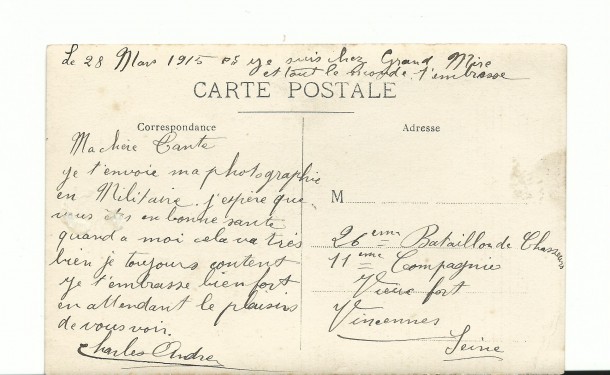 Le 28 Mars 1915 PS je suis chez Grand Mère
et tout le monde t'embrasse
CARTE POSTALE
Correspondance
Ma chère Tante
je t'envoie ma photographie
en Militaire. j'espère que
vous êtes en bonne santé
quand a moi cela va très
bien je toujours content
je t'embrasse bien fort
en attendant le plaisirs
de vous voir.
Charles André
Adresse
M
26eme Bataillon de Chasseurs
11eme Compagnie
Vieux fort
Vincennes
Seine